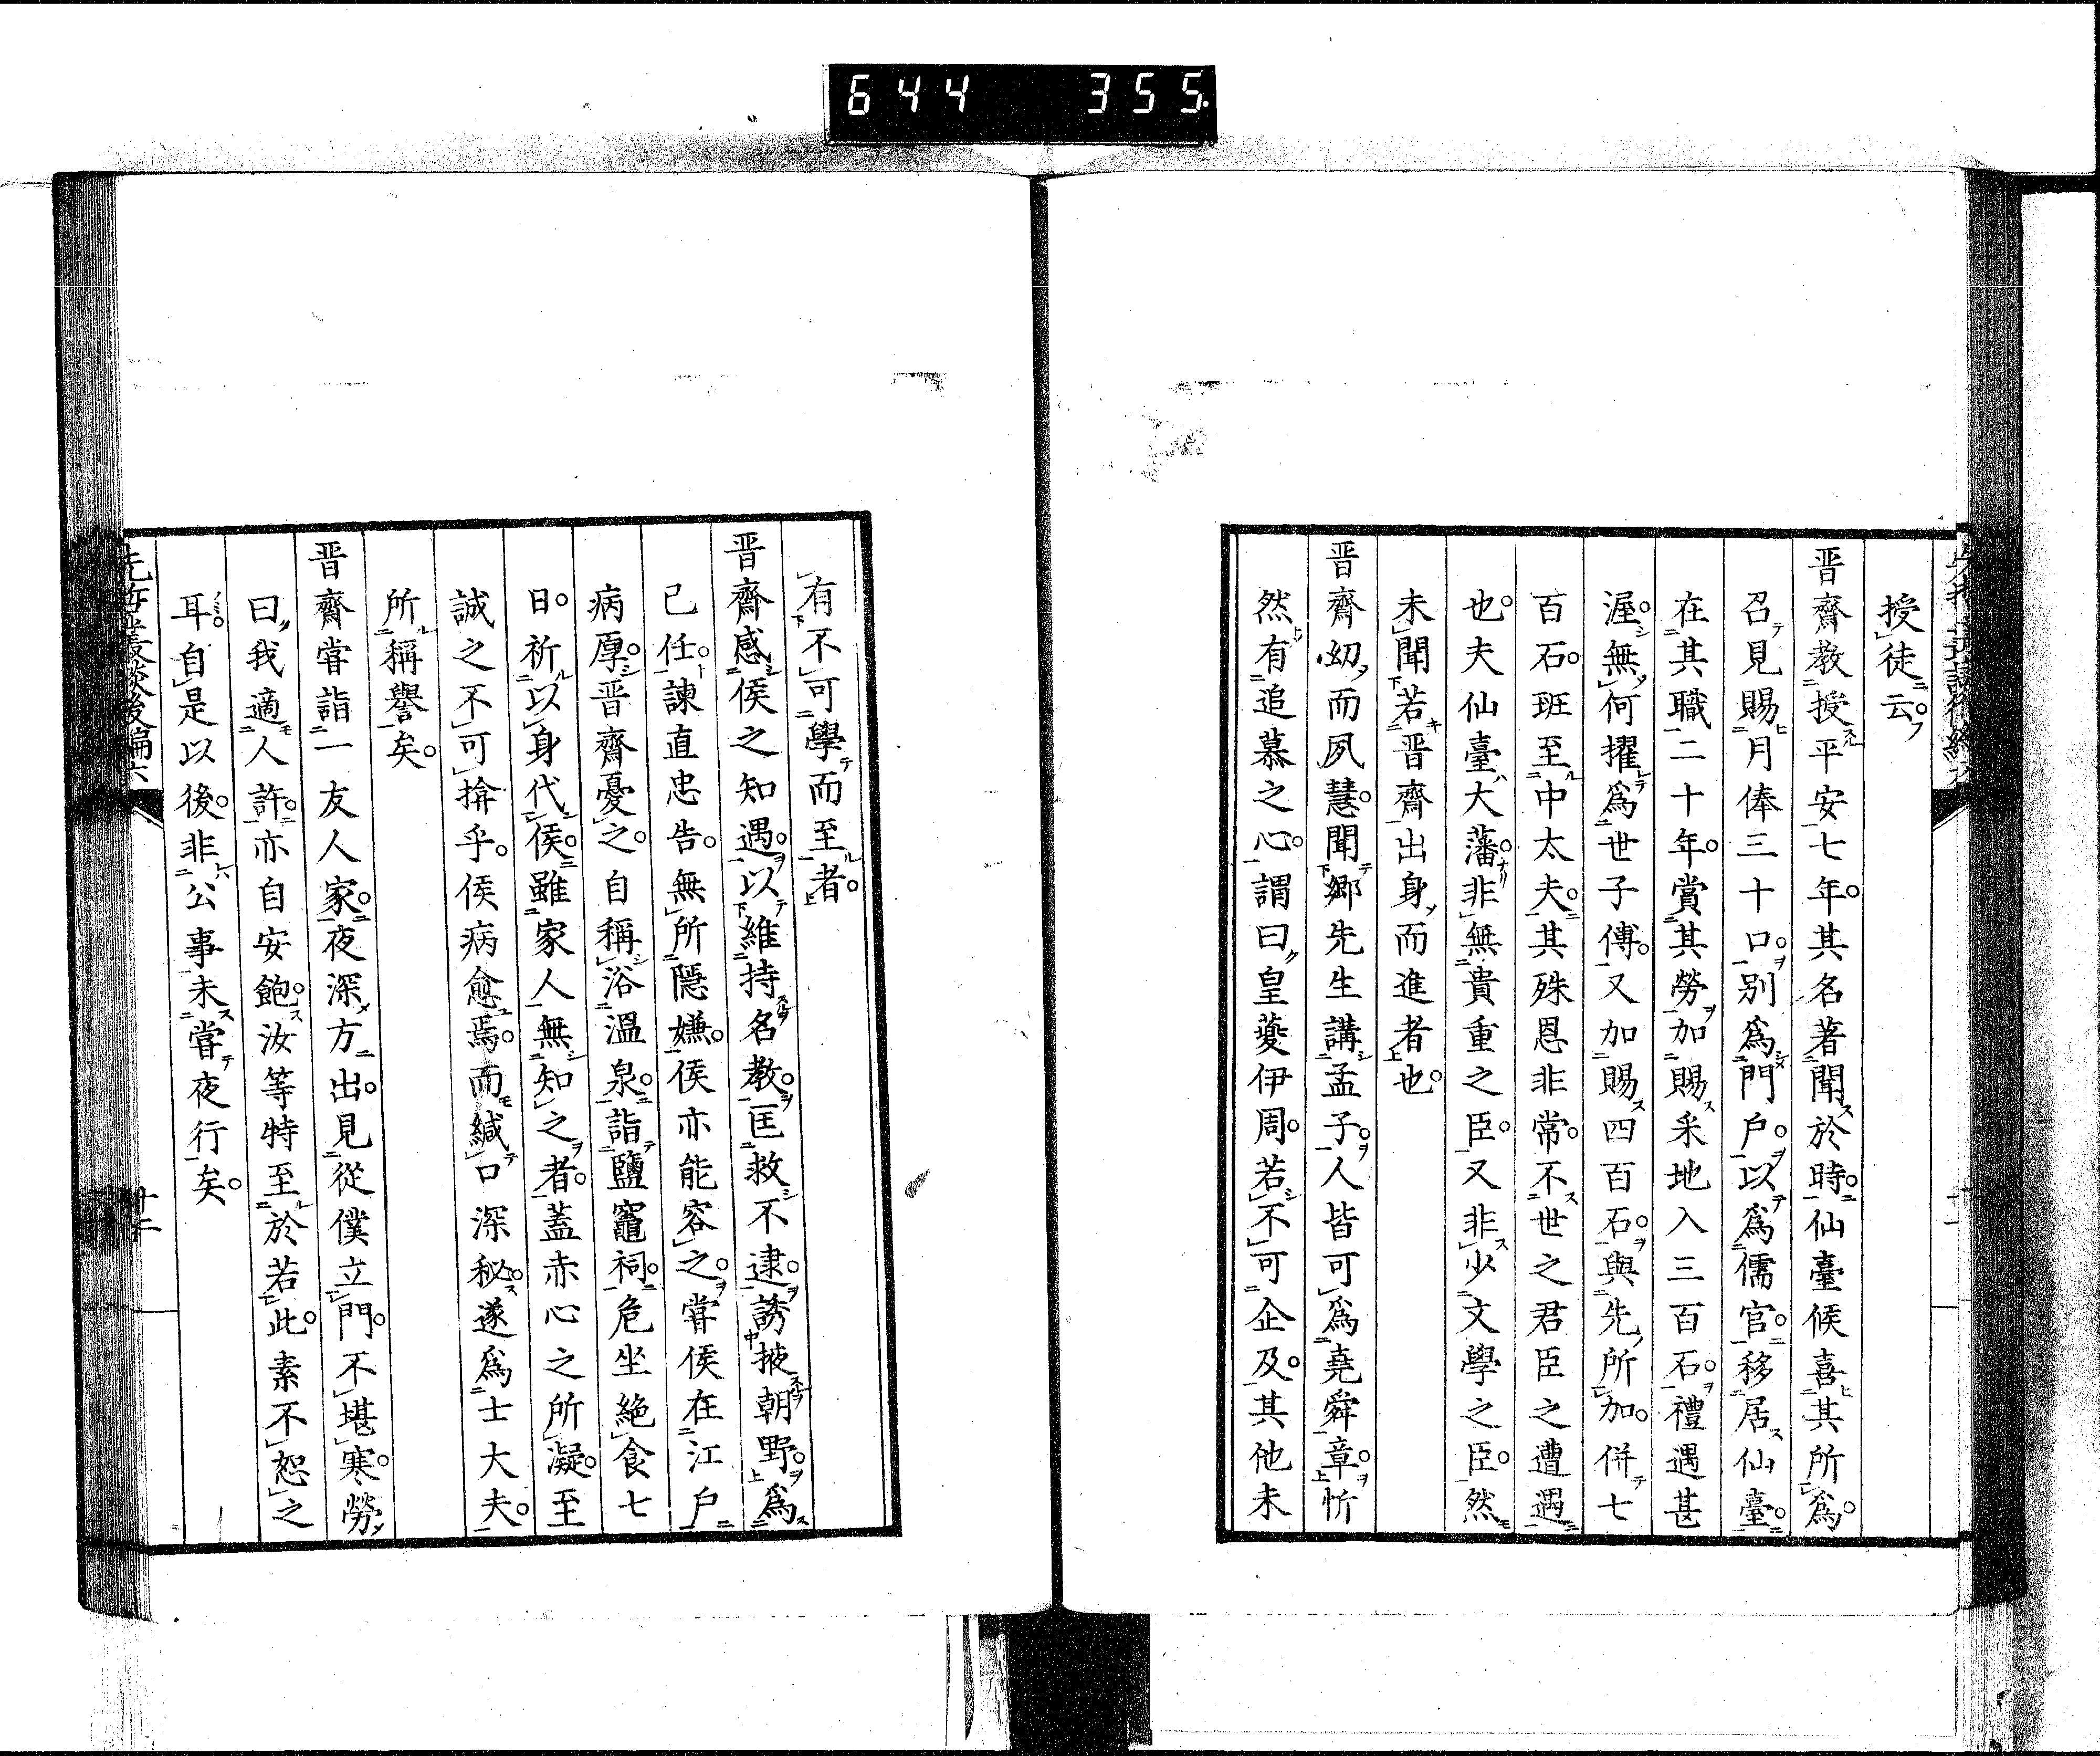 644 355
授徒云。
晋齋教授平安七年。其名著聞於時。仙臺侯喜其所爲。
召見賜月俸三十口。別爲門戶。以爲儒官。移居仙臺。
在其職二十年。賞其勞加賜采地入三百石。禮遇甚
渥。無何擢爲世子傅。又加賜四百石。與先所加。併七
百石。班至中太夫。其殊恩非常。不世之君臣之遭遇
也。夫仙臺大藩。非無貴重之臣。又非少文學之臣。然
未聞若晋齋出身而進者也。
晋齋幼而夙慧。聞鄉先生講孟子。人皆可爲堯舜章。忻
然有追慕之心。謂曰皇夔伊周。若不可企及。其他未
有不可學而至者。
晋齋感侯之知遇。以維持名教。匡救不逮。誘掖朝野。爲
己任。諫直忠告。無所隱嫌。侯亦能容之。嘗侯在江戶
病厚。晋齋憂之。自稱浴溫泉。詣鹽竈祠。危坐絶食七
日。祈以身代侯。雖家人無知之者。蓋赤心之所凝。至
誠之不可揜乎。侯病愈焉。而緘口深秘。遂爲士大夫。
所稱譽矣。
晋齋嘗詣一友人家。夜深方出。見從僕立門。不堪寒勞
曰我適人許。亦自安飽。汝等特至於若此。素不恕之
耳。自是以後。非公事未嘗夜行矣。
先哲叢談後編六
十二